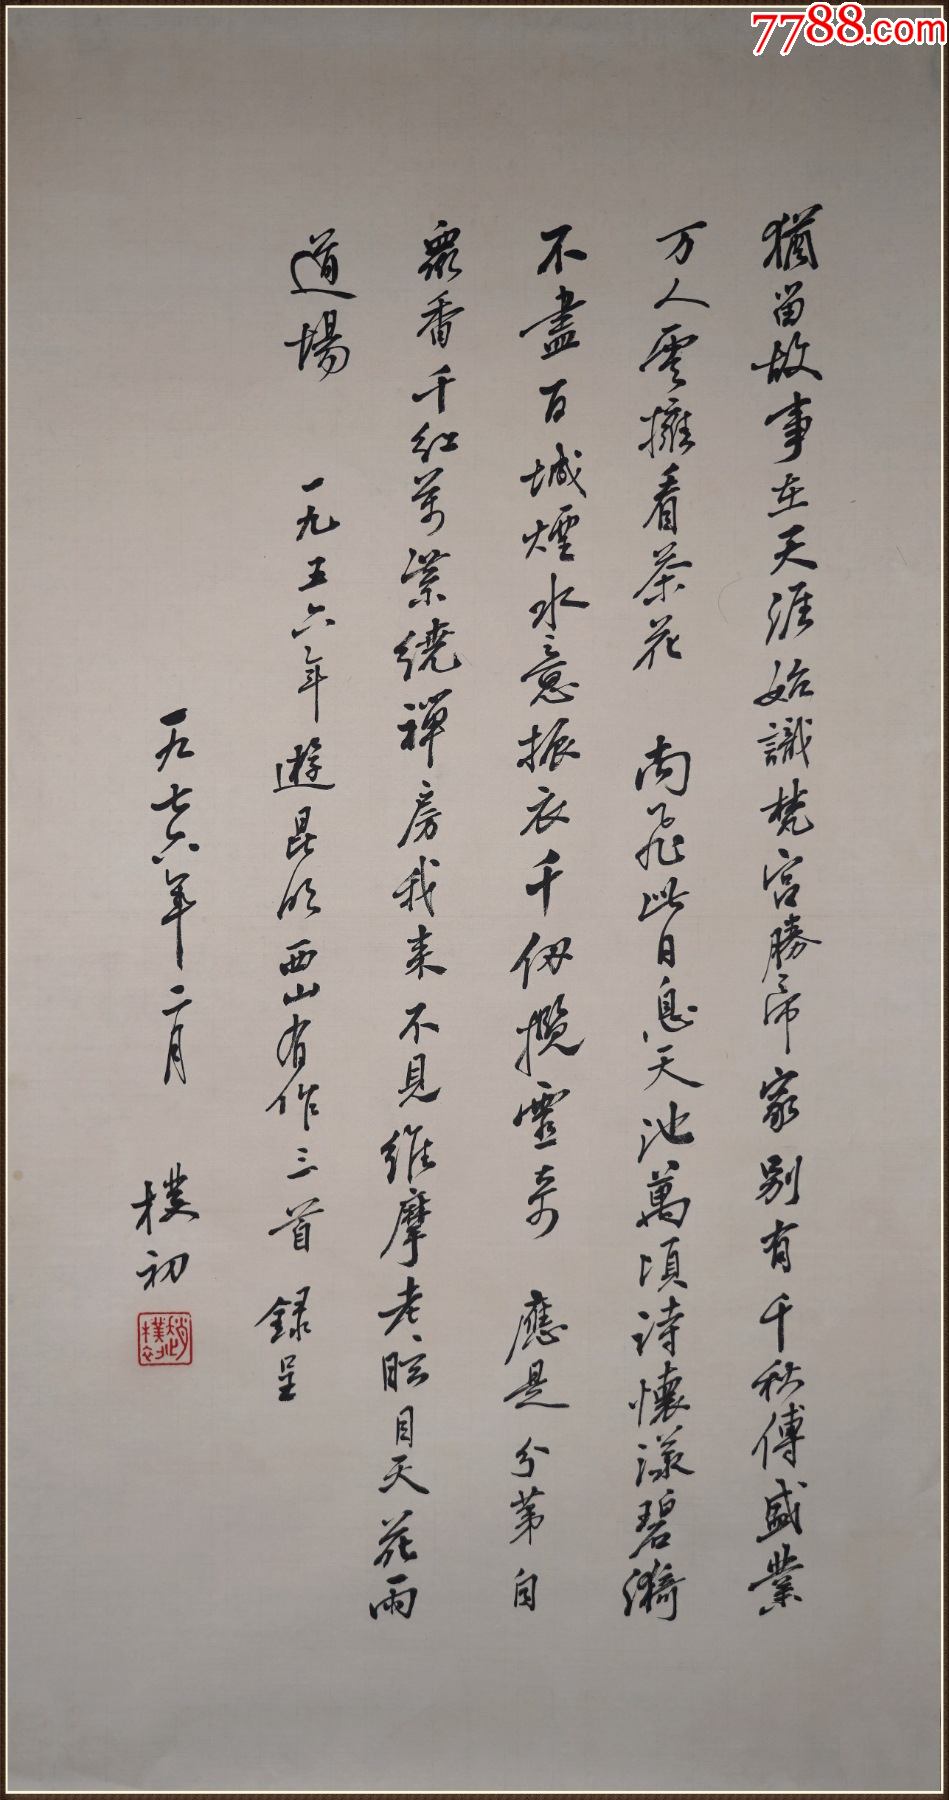 7788.com
猶留故事在天涯始識梵宮勝帝家別有千秋傳盛業
万人雲擁看茶花 南飛此日息天池萬頃詩懷漾碧漪
不盡百城煙水意振衣千仞攬靈奇 應是分茅自
眾香千紅萬紫繞禪房我来不見維摩老眩目天花雨
道場 一九五六年遊昆明西山有作三首 録呈
一九七六年二月 樸初
趙樸初